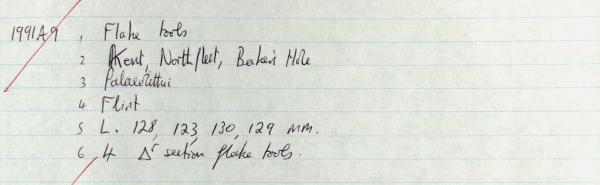 1991A9 1 Flake tools
2 Kent, Northfleet, Baker's Hole
3 Palaeolithic
4 Flint
5 L. 128, 123, 130, 129 mm.
6 4 Δr section flake tools.